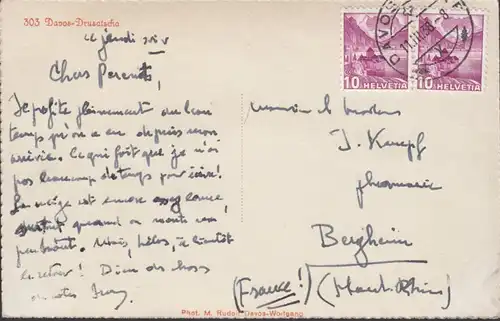 303 Davos-Drusatscha
Le jeudi
Chers Parents,
Je profite pleinement du beau
temps qu'on a eu depuis mon
arrivée. Ce qui fait que je n'ai
pas beaucoup de temps pour écrire!
La neige est encore assez
surtout quand on monte un
peu haut. Mais, hélas, à bientôt
le retour! Dien des choses
de votre
Monsieur
J. Kempf
pharmacie
Bergheim
(France!) (Haut-Rhin)
DAVOS
10 HELVETIA
10 HELVETIA
Phot. M. Rudolf Davos-Wolfgang